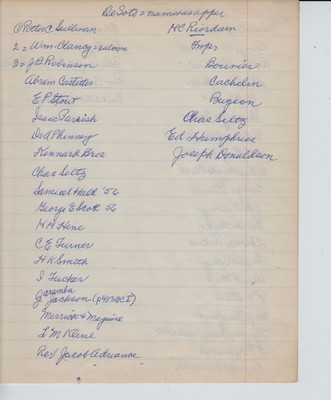 DeSoto = names as apper
1 Potter C. Sullivan
2 = Wm. Clancy = saloon
3 = J B Robinson
Abram Castetter
E P Stout
Isaac Parrish
Dod Phinney
Kennark Bros
Chas Seltz
Samuel Hall '56
George E Scott 56
H H Hine
C E Turner
H K Smith
I Tucker
Jackson (p 4
Merrick & Maguire
L M Kline
Rev Jacob Adriance
H C Riordam
Props
Bouvier
Cachelin
Bugeon
Chas Seltz
Ed Humphries
Joseph Donaldson